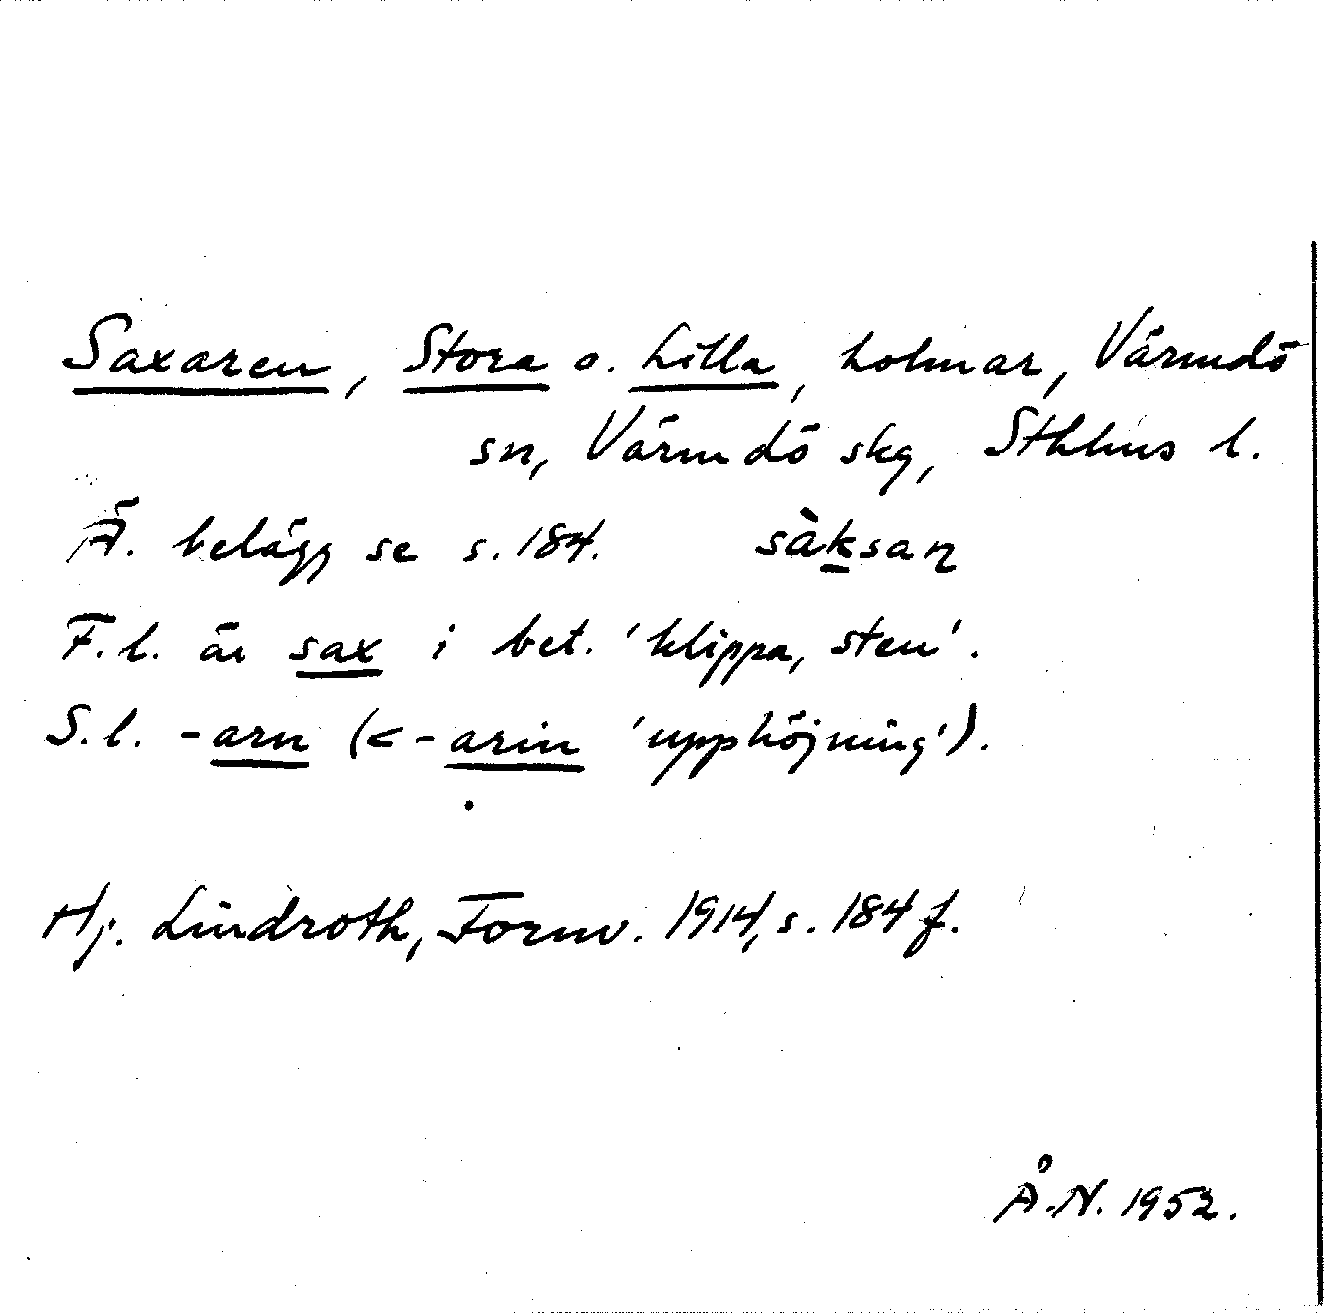 Saxaren, Stora o. Lilla, holmar, Värmdö
sn, Värmdö skg, Sthlms l.
Ä. belägg se s. 184. sàksaɳ
F.l. är sax i bet. 'klippa, sten'.
S.l. -arn (< -arin 'upphöjning').
Hj. Lindroth, Fornv. 1914, s. 184 f.
Å.N. 1952.